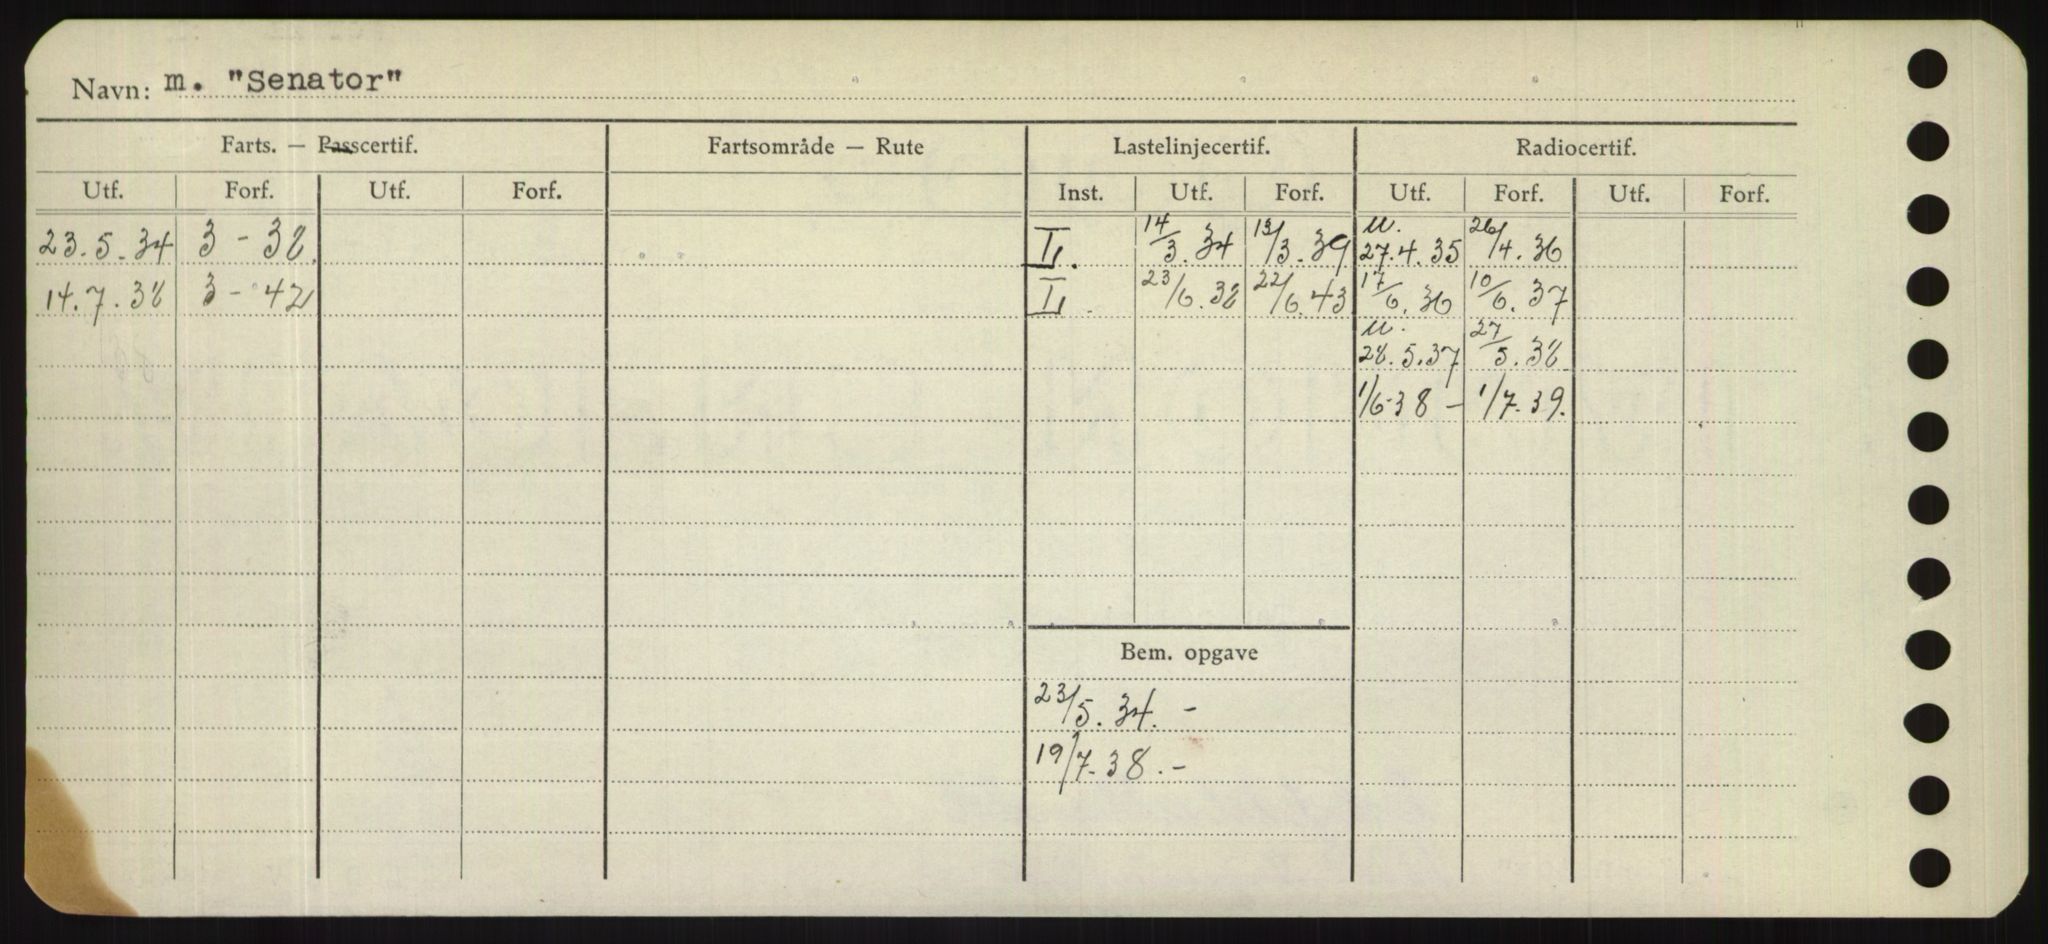 Navn: m. "Senator"
Farts. — Passcertif. Fartsområde — Rute Lastelinjecertif. Radiocertif.
Utf. Forf. Utf. Forf. Inst. Utf. Forf. Utf. Forf. Utf. Forf.
23.5.34 3-38. 14/3.34 13/3.39 u. 27.4.35 26/4.36
14.7.38 3-42 23/6.38 22/6.43 17/6.36 10/6.37
u. 28.5.37 27/5.38
1/6-38 - 1/7-39.
Bem. opgave
23/5.34.-
19/7-38.-